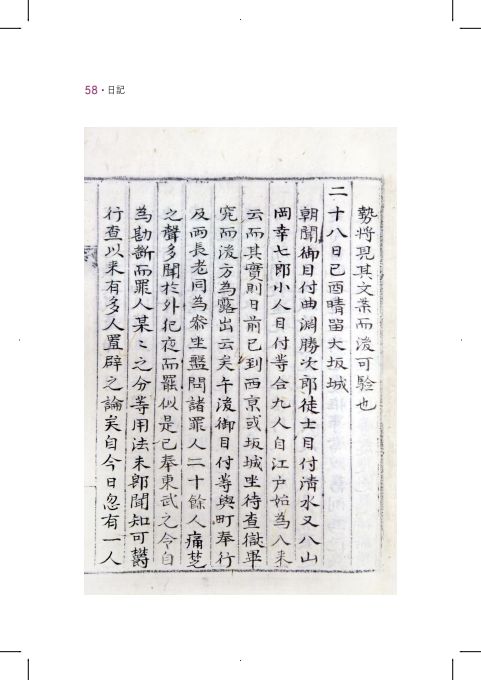 58 · 日記
勢將見其文案而後可驗也
二十八日己酉晴留大坂城
朝聞御目付曲淵勝次郎徒士目付淸水又八山
岡幸七郎小人目付等合九人自江户始為入来
云而其實則日前已到西京或坂城坐待查獄畢
究而後方為露出云矣午後御目付等與町奉行
及兩長老同為叅坐盤問諸罪人二十餘人痛楚
之聲多聞於外犯夜而罷似是已奉東武之令自
為勘斷而罪人某〻之分等用法未卽聞知可欝
行查以来有多人置辟之論矣自今日忽有一人